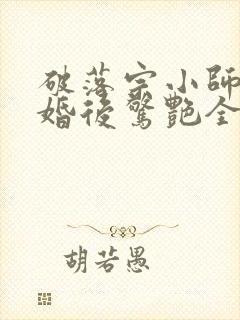 破落宗小師
婚後驚艷全
胡若愚